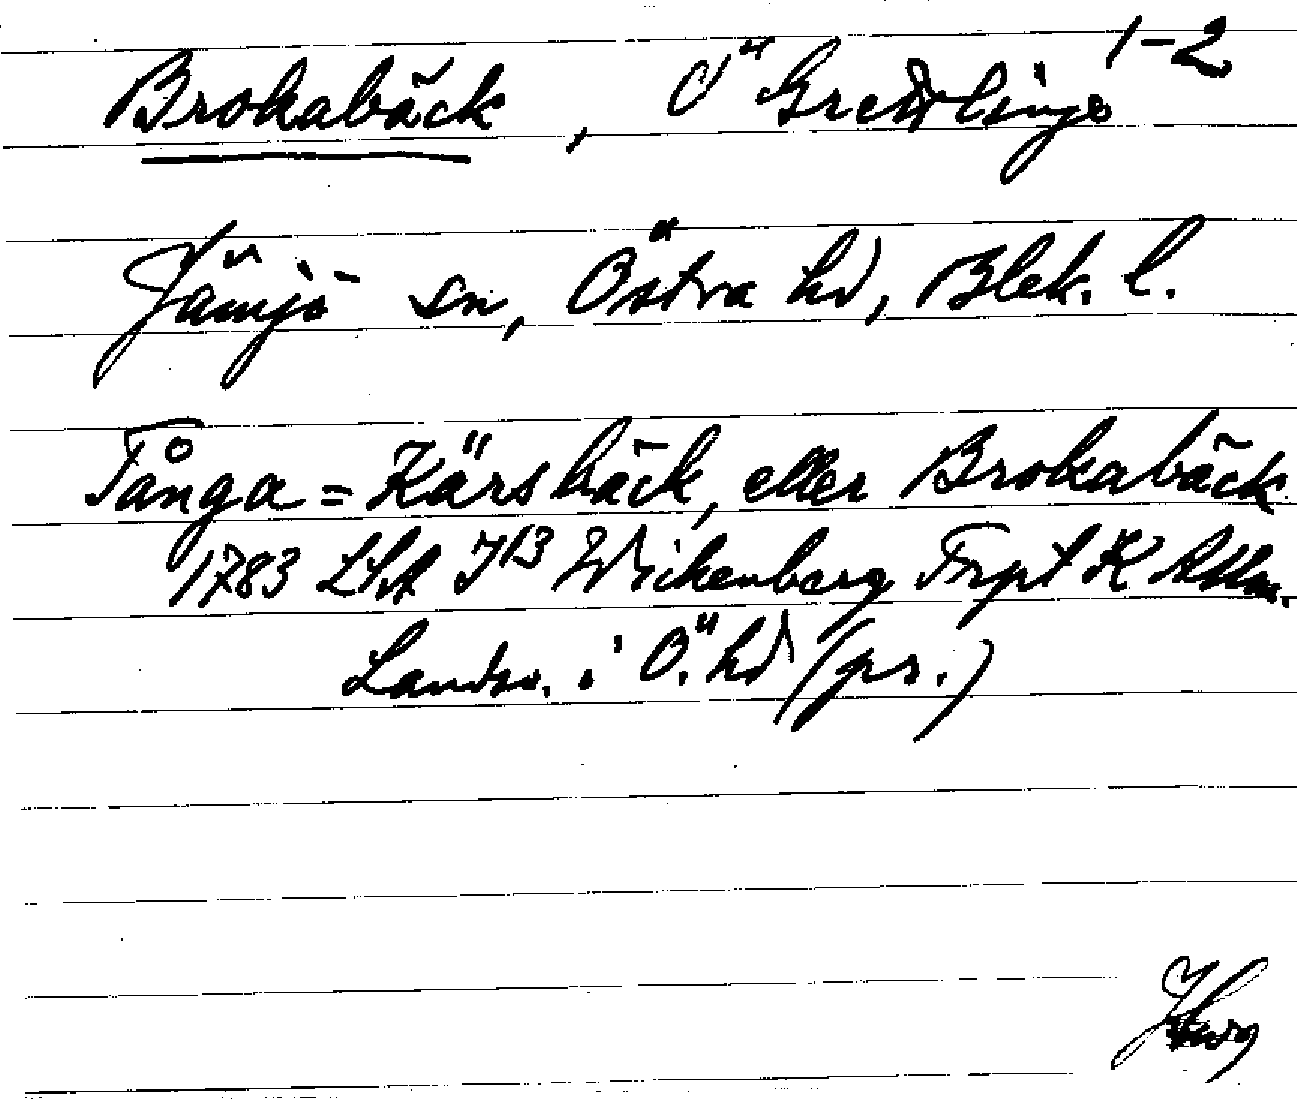 Brokabäck, Ö Grevlinge 1-2
Jämjö sn, Östra hd, Blek. l.
Tånga = Kärsbäck, eller Brokabäck
1783 LSA J13 Wickenberg Trpt K Allm.
Landsv. i Ö. hd (pr.)